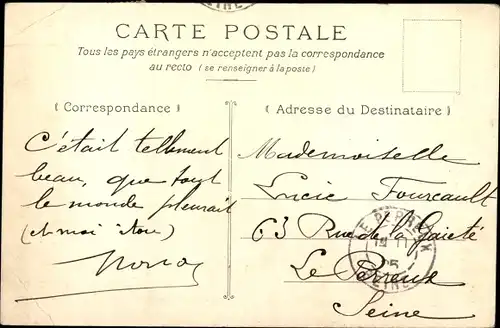 CARTE POSTALE
Tous les pays étrangers n'acceptent pas la correspondance
au recto (se renseigner à la poste)
(Correspondance)
(Adresse du Destinataire)
C'était tellement
beau, que tout
le monde pleurait
(et moi itou)
Mademoiselle
Lucie Fourcault
63 Rue de la Gaieté
Le Perreux
Seine